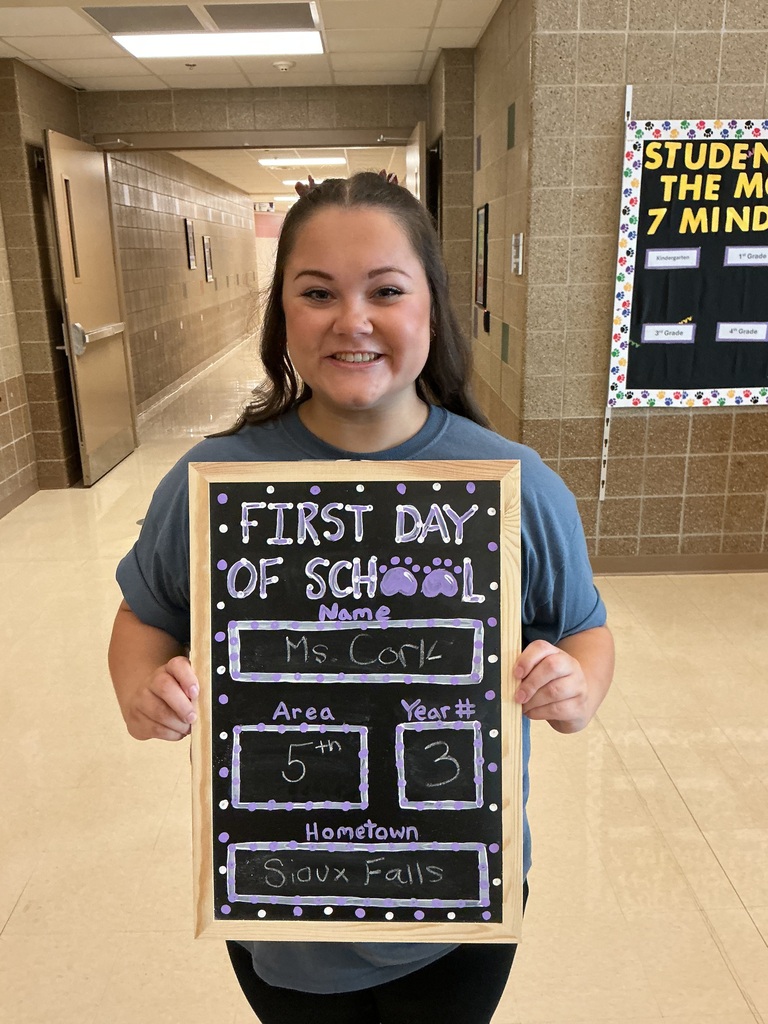 FIRST DAY
OF SCHOOL
Name
Ms. Cork
Area
Year#
5th
3
Hometown
Sioux Falls
STUDEN
THE MO
7 MIND
Kindergarten
1st Grade
3rd Grade
4th Grade